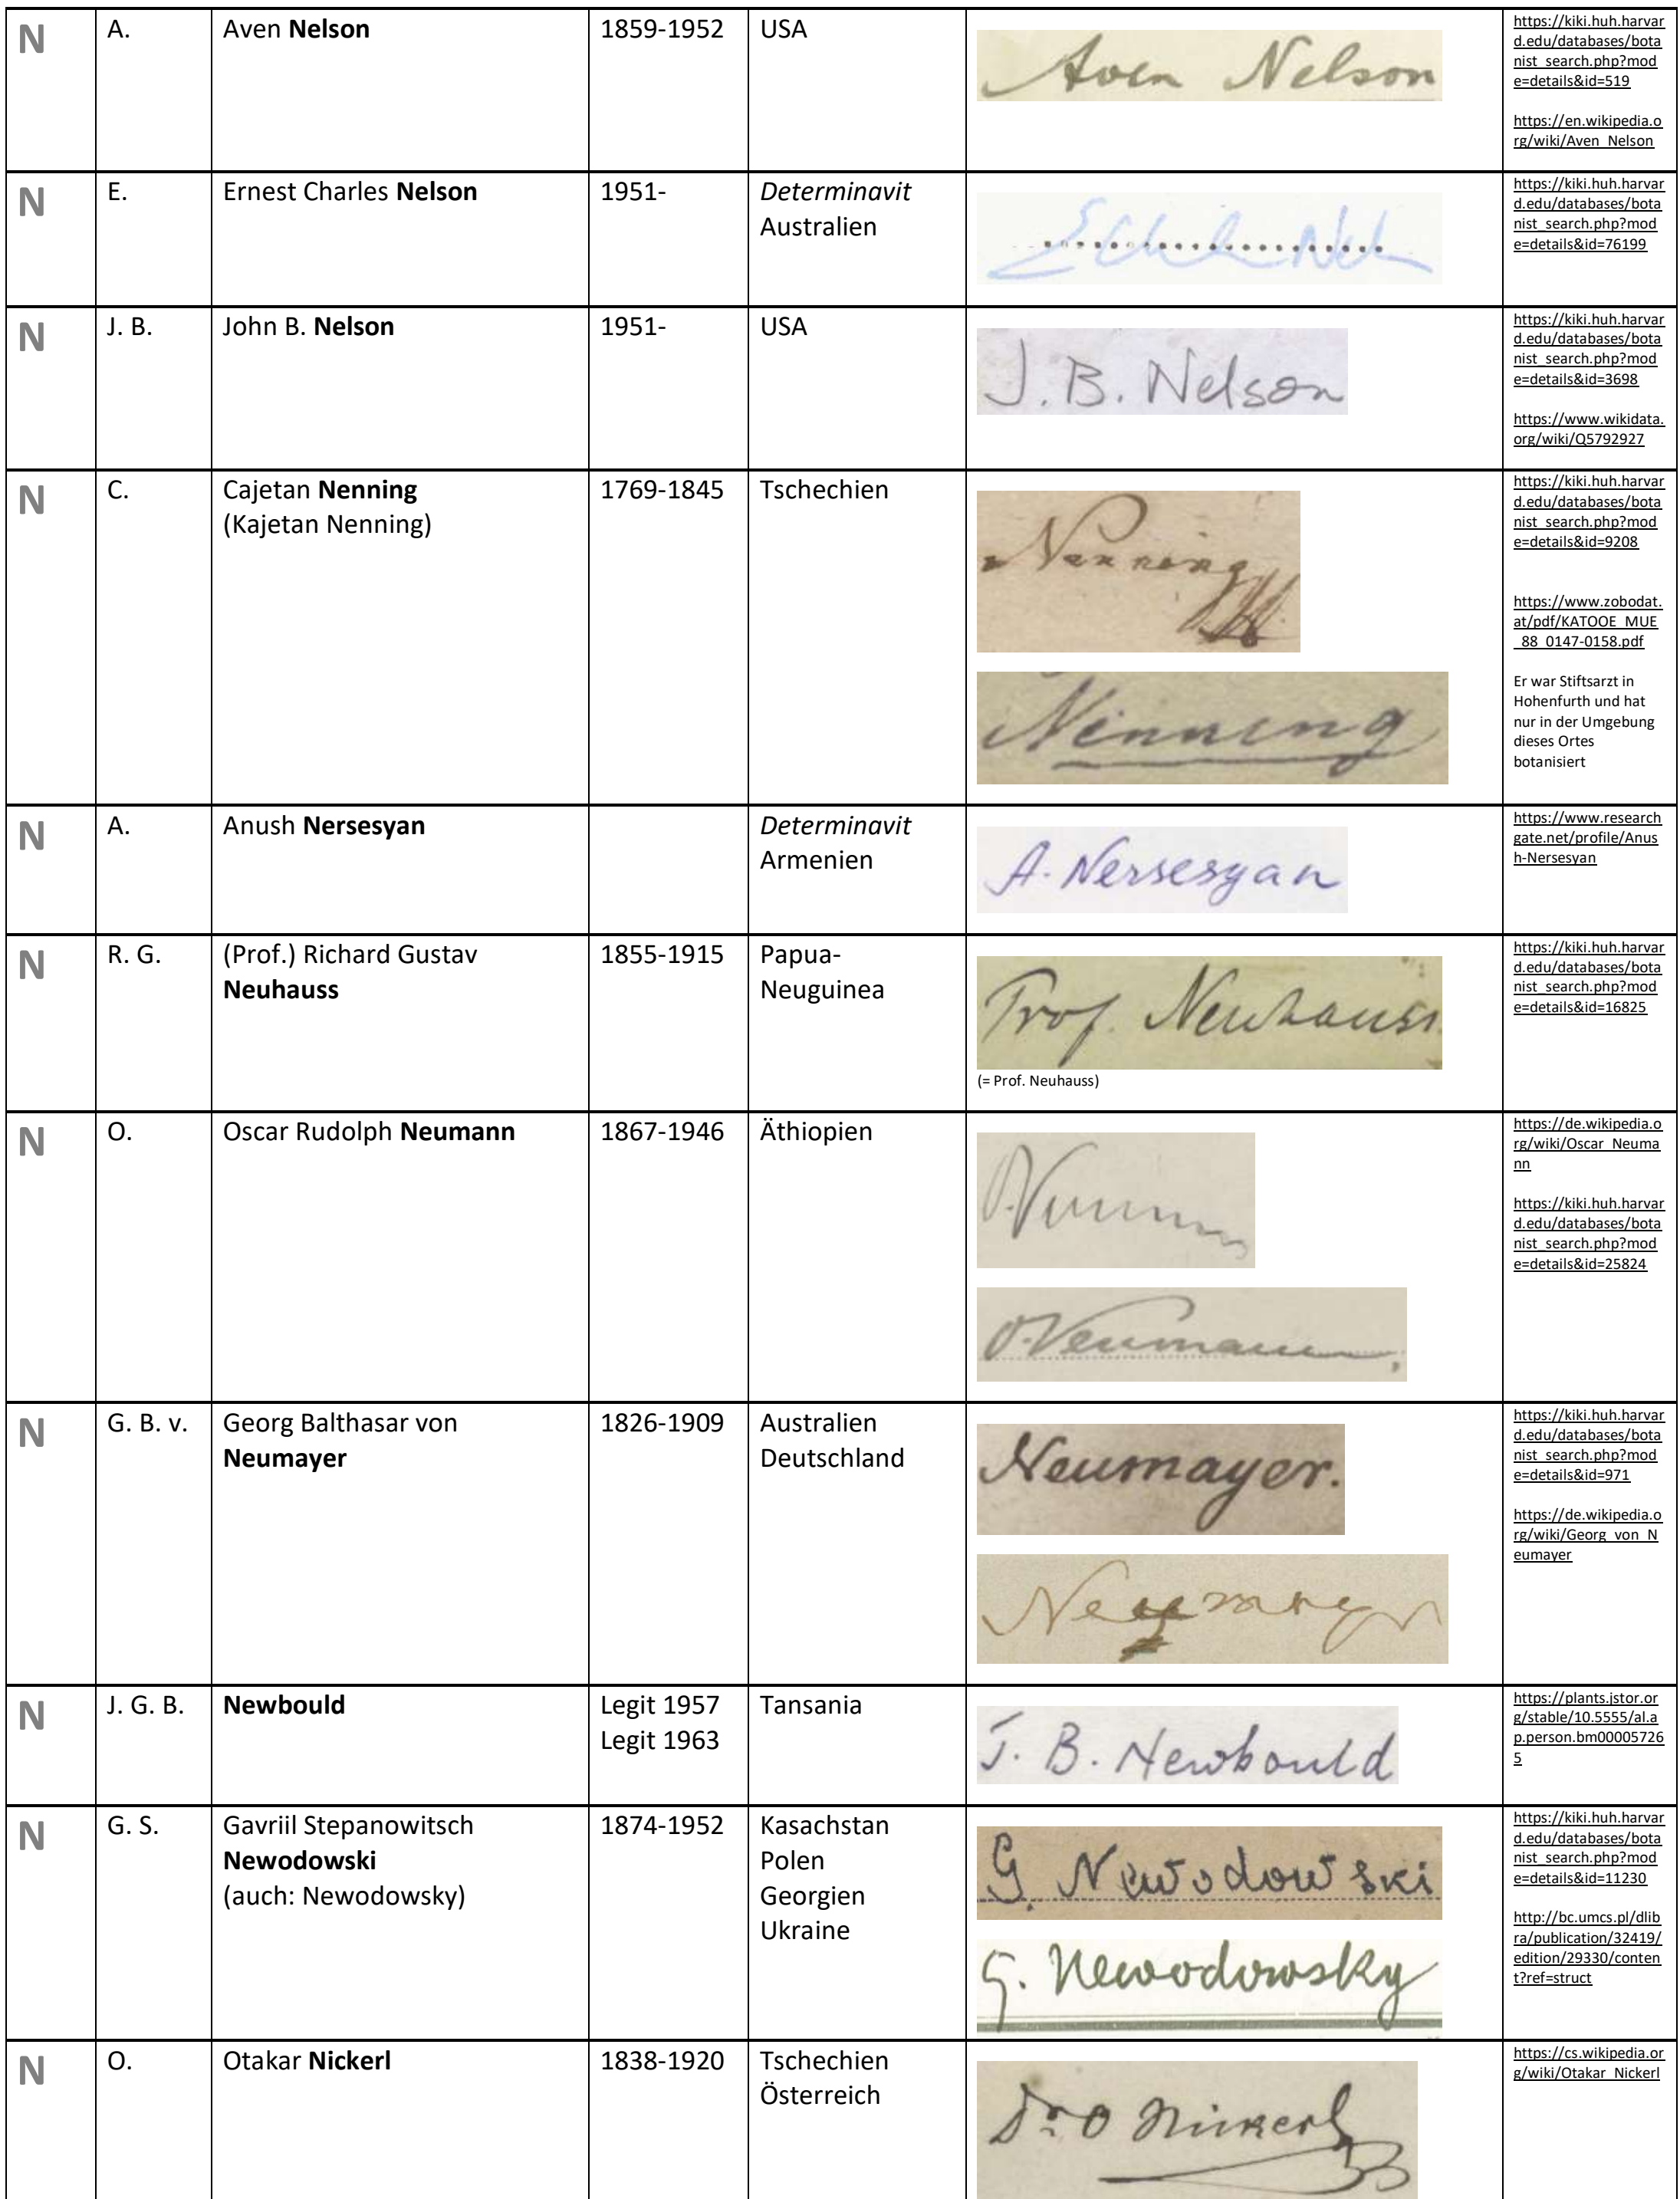 N A. Aven Nelson 1859-1952 USA Aven Nelson
https://kiki.huh.harvar
d.edu/databases/bota
nist_search.php?mod
e=details&id=519
https://en.wikipedia.o
rg/wiki/Aven_Nelson
N E. Ernest Charles Nelson 1951- Determinavit
Australien
https://kiki.huh.harvar
d.edu/databases/bota
nist_search.php?mod
e=details&id=76199
N J. B. John B. Nelson 1951- USA J. B. Nelson
https://kiki.huh.harvar
d.edu/databases/bota
nist_search.php?mod
e=details&id=3698
https://www.wikidata.
org/wiki/Q5792927
N C. Cajetan Nenning 1769-1845 Tschechien
(Kajetan Nenning)
Nenning
Nenning
https://kiki.huh.harvar
d.edu/databases/bota
nist_search.php?mod
e=details&id=9208
https://www.zobodat.
at/pdf/KATOOE_MUE
_88_0147-0158.pdf
Er war Stiftsarzt in
Hohenfurth und hat
nur in der Umgebung
dieses Ortes
botanisiert
N A. Anush Nersesyan Determinavit
Armenien
A. Nersesyan
https://www.research
gate.net/profile/Anus
h-Nersesyan
N R. G. (Prof.) Richard Gustav 1855-1915 Papua-
Neuhauss Neuguinea
Prof. Neuhauss
(= Prof. Neuhauss)
https://kiki.huh.harvar
d.edu/databases/bota
nist_search.php?mod
e=details&id=16825
N O. Oscar Rudolph Neumann 1867-1946 Äthiopien
O. Neumann
https://de.wikipedia.o
rg/wiki/Oscar_Neuma
nn
https://kiki.huh.harvar
d.edu/databases/bota
nist_search.php?mod
e=details&id=25824
N G. B. v. Georg Balthasar von 1826-1909 Australien
Neumayer Deutschland
Neumayer.
Neumayer
https://kiki.huh.harvar
d.edu/databases/bota
nist_search.php?mod
e=details&id=971
https://de.wikipedia.o
rg/wiki/Georg_von_N
eumayer
N J. G. B. Newbould Legit 1957 Tansania
Legit 1963
J. B. Newbould
https://plants.jstor.or
g/stable/10.5555/al.a
p.person.bm00005726
5
N G. S. Gavriil Stepanowitsch 1874-1952 Kasachstan
Newodowski Polen
(auch: Newodowsky) Georgien
Ukraine
G. Newodowski
G. Newodowsky
https://kiki.huh.harvar
d.edu/databases/bota
nist_search.php?mod
e=details&id=11230
http://bc.umcs.pl/dlib
ra/publication/32419/
edition/29330/conten
t?ref=struct
N O. Otakar Nickerl 1838-1920 Tschechien
Österreich
Dr O Nickerl
https://cs.wikipedia.or
g/wiki/Otakar_Nickerl